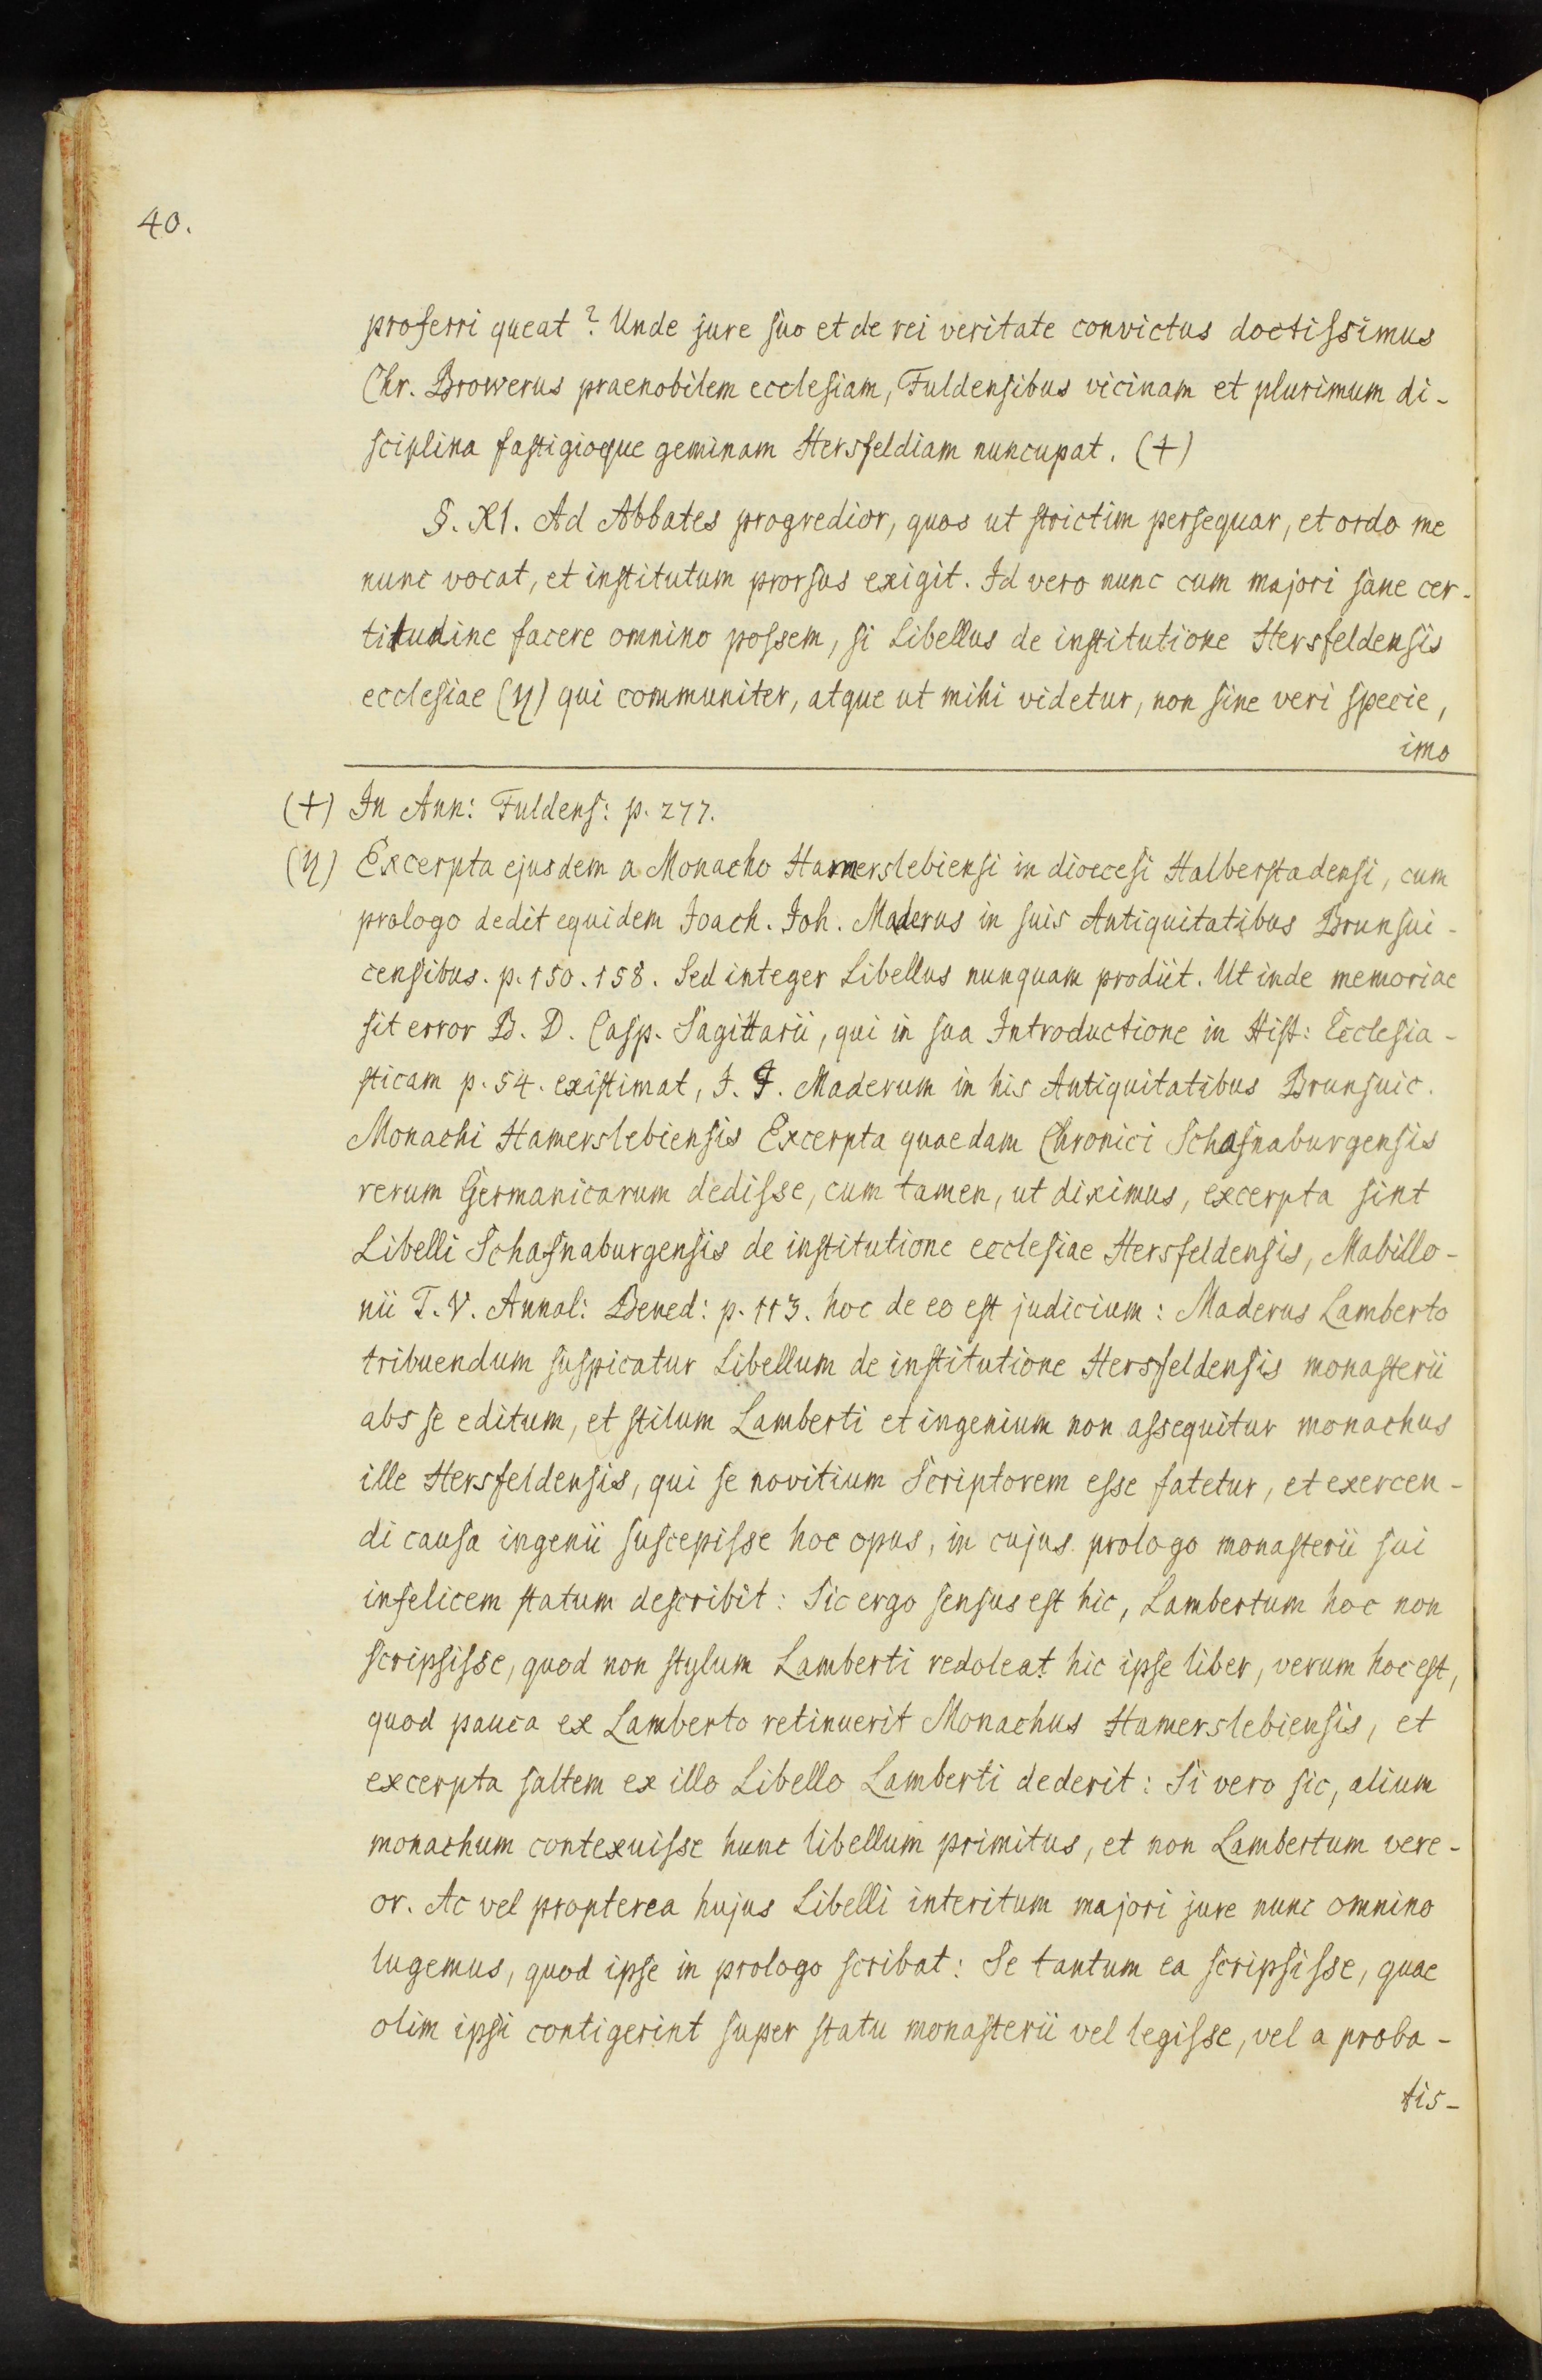 40.
proferri queat? Unde jure suo et de rei veritate convictus doctissimus
Chr. Browerus praenobilem ecclesiam, Fuldensibus vicinam et plurimum di-
sciplina fastigioque geminam Hersfeldiam nuncupat. (+)
§. XI. Ad Abbates progredior, quos ut strictim persequar, et ordo me
nunc vocat, et institutum prorsus exigit. Id vero nunc cum majori sane cer-
titudine facere omnino possem, si Libellus de institutione Hersfeldensis
ecclesiae (η) qui communiter, atque ut mihi videtur, non sine veri specie,
imo
(+) In Ann: Fuldens: p. 277.
(η) Excerpta ejusdem a Monacho Hamerslebiensi in dioecesi Halberstadensi, cum
prologo dedit equidem Joach. Joh. Maderus in suis Antiquitatibus Brunsui-
censibus. p. 150. 158. Sed integer Libellus nunquam prodiit. Ut inde memoriae
sit error B. D. Casp. Sagittarii, qui in sua Introductione in Hist: Ecclesia-
sticam p. 54. existimat, J. J. Maderum in his Antiquitatibus Brunsuic.
Monachi Hamerslebiensis Excerpta quaedam Chronici Schafnaburgensis
rerum Germanicarum dedisse, cum tamen, ut diximus, excerpta sint
Libelli Schafnaburgensis de institutione ecclesiae Hersfeldensis, Mabillo-
nii T. V. Annal: Bened: p. 113. hoc de eo est judicium: Maderus Lamberto
tribuendum suspicatur Libellum de institutione Hersfeldensis monasterii
abs se editum, et stilum Lamberti et ingenium non assequitur monachus
ille Hersfeldensis, qui se novitium Scriptorem esse fatetur, et exercen-
di causa ingenii suscepisse hoc opus, in cujus prologo monasterii sui
infelicem statum describit: Sic ergo sensus est hic, Lambertum hoc non
scripsisse, quod non stylum Lamberti redoleat hic ipse liber, verum hoc est,
quod pauca ex Lamberto retinuerit Monachus Hamerslebiensis, et
excerpta saltem ex illo Libello Lamberti dederit: Si vero sic, alium
monachum contexuisse hunc libellum primitus, et non Lambertum vere-
or. Ac vel propterea hujus Libelli interitum majori jure nunc omnino
lugemus, quod ipse in prologo scribat: Se tantum ea scripsisse, quae
olim ipsi contigerint super statu monasterii vel legisse, vel a proba-
tis-